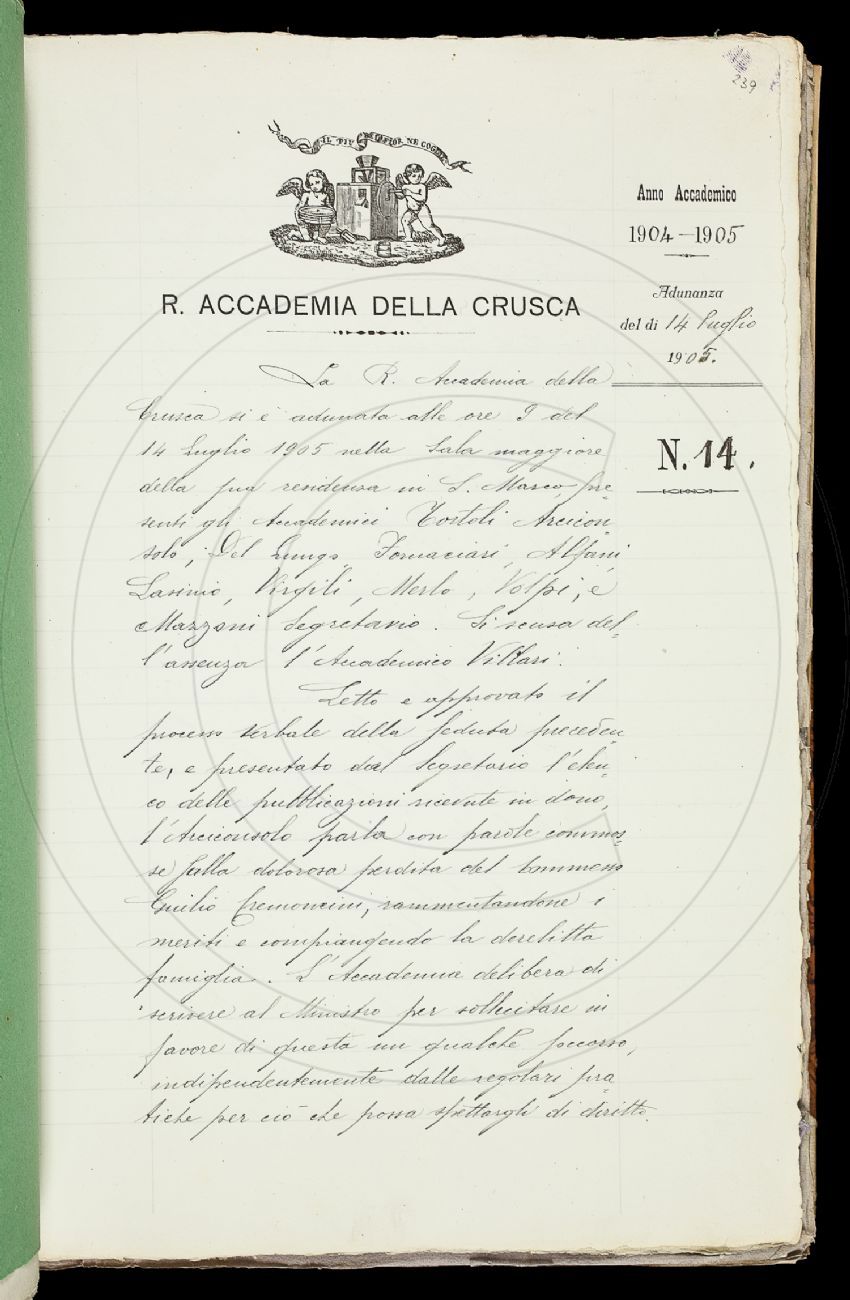 239
IL PIÙ BEL FIOR NE COGLIE
Anno Accademico
1904-1905
Adunanza
del dì 14 luglio
1905.
R. ACCADEMIA DELLA CRUSCA
N. 14.
La R. Accademia della
Crusca si è adunata alle ore 9 del
14 Luglio 1905 nella Sala maggiore
della sua residenza in S. Marco, pre=
senti gli Accademici Tortoli Arcicon=
solo; Del Lungo, Fornaciari, Alfani,
Lasinio, Virgili, Merlo, Volpi, e
Mazzoni Segretario. Si scusa del=
l'assenza l'Accademico Villari.
Letto e approvato il
processo verbale della seduta preceden=
te, e presentato dal Segretario l'elen=
co delle pubblicazioni ricevute in dono,
l'Arciconsolo parla con parole commos=
se sulla dolorosa perdita del Commesso
Giulio Cremoncini, rammentandone i
meriti e compiangendo la derelitta
famiglia. L'Accademia delibera di
scrivere al Ministro per sollecitare in
favore di questa un qualche soccorso,
indipendentemente dalle regolari pra=
tiche per ciò che possa spettargli di diritto.